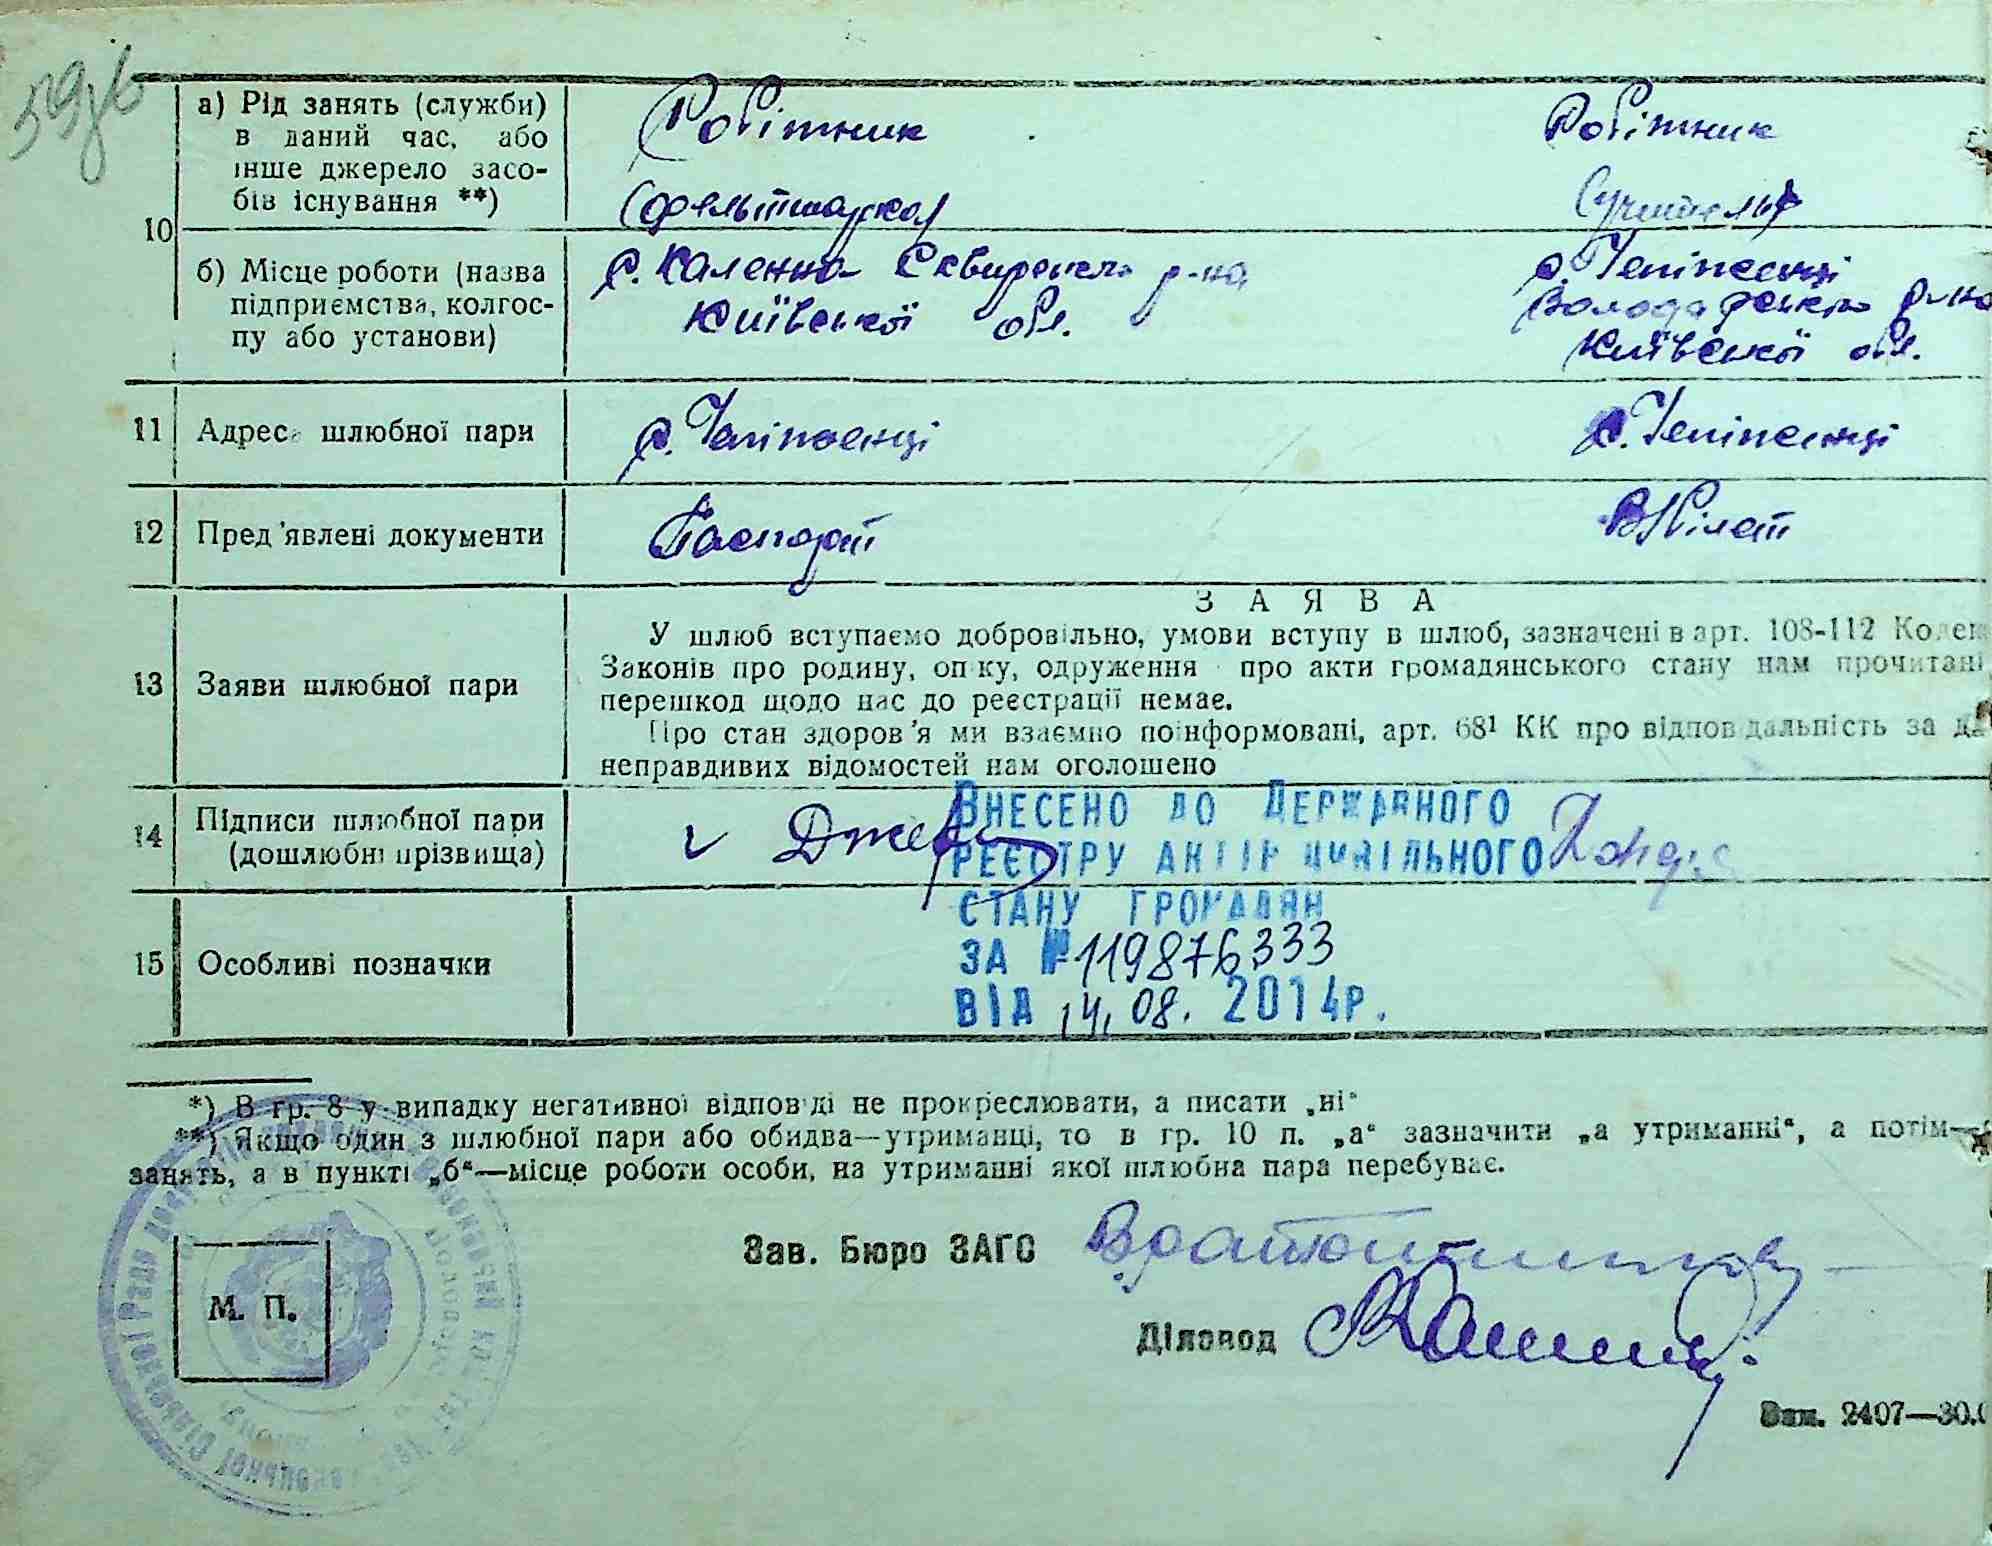 59зв
а) Рід занять (служби) в даний час, або інше джерело засобів існування **)
Робітник
Робітник
(фельтшарка)
(учитель)
10
б) Місце роботи (назва підприємства, колгоспу або установи)
с. Каленна Сквирського р-на
Київської обл.
с. Чепіженці
Володарського р-на
Київської обл.
11 Адреса шлюбної пари
с. Чепіженці
с. Чепіженці
12 Пред'явлені документи
Паспорт
В/білет
ЗАЯВА
13 Заяви шлюбної пари
У шлюб вступаємо добровільно, умови вступу в шлюб, зазначені в арт. 108-112 Кодек
Законів про родину, опіку, одруження про акти громадянського стану нам прочитані
перешкод щодо нас до реєстрації немає.
Про стан здоров'я ми взаємно поінформовані, арт. 68¹ КК про відповідальність за да
неправдивих відомостей нам оголошено
14 Підписи шлюбної пари
(дошлюбні прізвища)
ВНЕСЕНО ДО ДЕРЖАВНОГО
РЕЄСТРУ АКТІВ ЦИВІЛЬНОГО
СТАНУ ГРОМАДЯН
ЗА № 119876333
ВІД 14.08. 2014р.
15 Особливі позначки
*) В гр. 8 у випадку негативної відповіді не прокреслювати, а писати „ні"
**) Якщо один з шлюбної пари або обидва—утриманці, то в гр. 10 п. „а" зазначити „а утриманні", а потім—
занять, а в пункті „б"—місце роботи особи, на утриманні якої шлюбна пара перебуває.
Зав. Бюро ЗАГС
Діловод
М. П.
Зам. 2407—30.